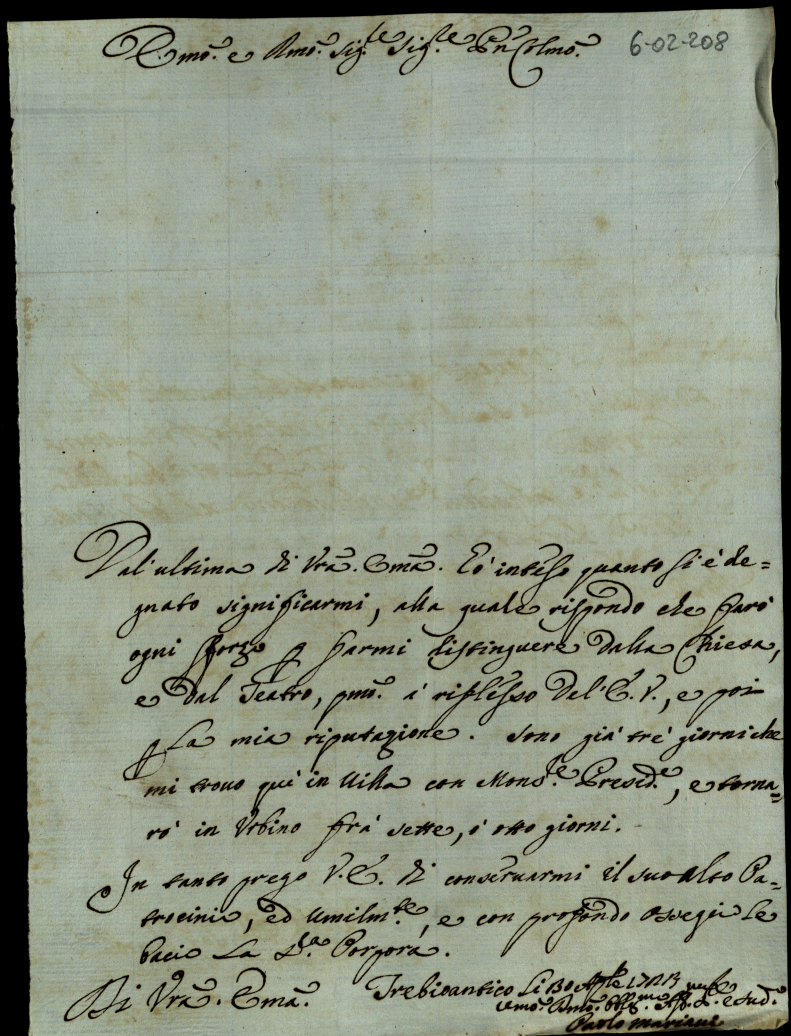 Emo: e Rmo: Sig:re Sig:re Pn Colmo:
6-02-208
Dal'ultima di Vra: Ema: hò inteso quanto si è de=
gnato significarmi, alla quale rispondo che farò
ogni sforzo p farmi distinguere dalla Chiesa,
e dal Teatro, pmo: à riflesso del'E. V., e poi
p la mia riputazione. Sono già trè giorni che
mi trovo quì in Villa con Mons:re Presid:e, e torna=
rò in Urbino frà sette, ò otto giorni.
In tanto prego V. E. di conservarmi il suo alto Pa=
trocinio, ed umilm:te, e con profondo ossequio le
bacio la S:a Porpora.
Di Vra: Ema:
Trebioantico Li 30 Ap:le
Umo: Dmo: S: e Sud:
Paolo Mariani